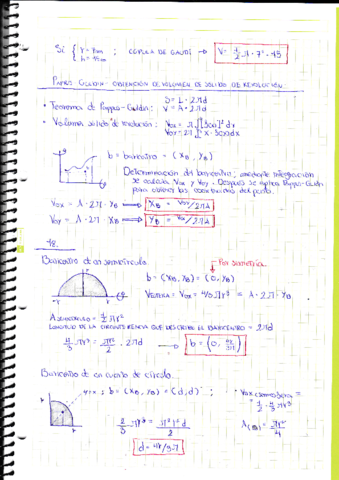 Si { r = 7m
h = 45m ; CÚPULA DE GAUDÍ → V = 1/2 · π · 7² · 45
PAPPUS GULDIN - OBTENCIÓN DE VOLUMEN DE SÓLIDO DE REVOLUCIÓN.
• Teorema de Pappus-Guldin: S = L · 2πd
V = A · 2πd
• Volumen sólido de revolución: Vox = π∫[f(x)]² dx
Voy = 2π∫ x · f(x) dx
b = baricentro = (x_B, y_B)
Determinación del baricentro: mediante integración
se calcula Vox y Voy. Después se aplica Pappus-Guldin
para obtener las coordenadas del punto.
Vox = A · 2π · y_B
Voy = A · 2π · x_B
18.
Baricentro de un semicírculo.
Por simetría
b = (x_B, y_B) = (0, y_B)
Vox = 4/3 πr³ = A · 2π · y_B
A semicírculo = 1/2 πr²
LONGITUD DE LA CIRCUNFERENCIA QUE DESCRIBE EL BARICENTRO = 2πd
4/3 πr³ = πr²/2 · 2πd → b = (0, 4r/3π)
Baricentro de un cuarto de círculo.
b = (x_B, y_B) = (d, d) ; Vox (semiesfera) =
= 1/2 · 4/3 πr³
2/3 πr³ = π²r²d/2
A = πr²/4
d = 4r/3π